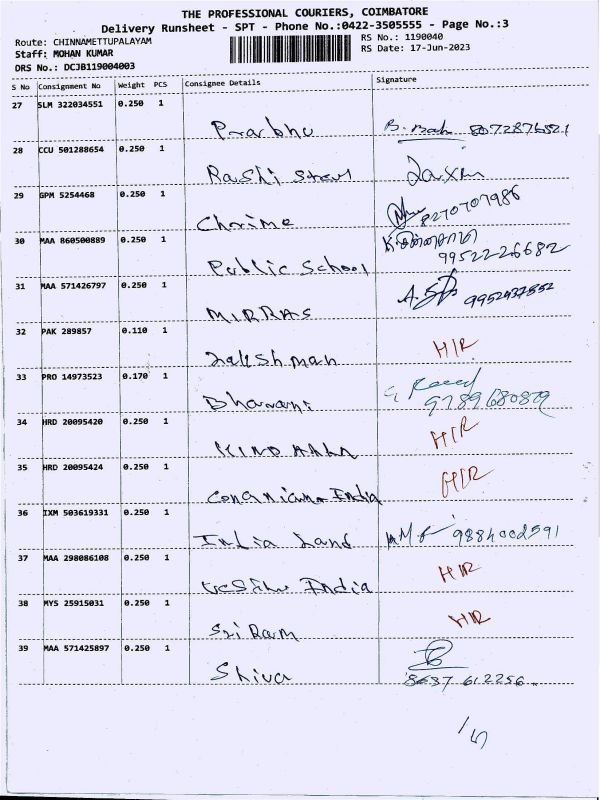 THE PROFESSIONAL COURIERS, COIMBATORE
Delivery Runsheet - SPT - Phone No.:0422-3505555 - Page No.:3
Route: CHINNAMETTUPALAYAM
RS No.: 1190040
Staff: MOHAN KUMAR
RS Date: 17-Jun-2023
DRS No.: DCJB119004003
S No Consignment No Weight PCS Consignee Details Signature
27 SLM 322034551 0.250 1
Prabhu
28 CCU 501288654 0.250 1
Rashi Laxm
29 GPM 5254468 0.250 1
8270707986
30 MAA 860500889 0.250 1
Public School 9952226682
31 MAA 571426797 0.250 1
MIRRAS
32 PAK 289857 0.110 1
Lakshman H/R
33 PRO 14973523 0.170 1
Bhavani
34 HRD 20095420 0.250 1
H/R
35 HRD 20095424 0.250 1
India H/R
36 IXM 503619331 0.250 1
India Land 9884002591
37 MAA 298086108 0.250 1
India H/R
38 MYS 25915031 0.250 1
Sri Ram H/R
39 MAA 571425897 0.250 1
Shiva
8637 612256